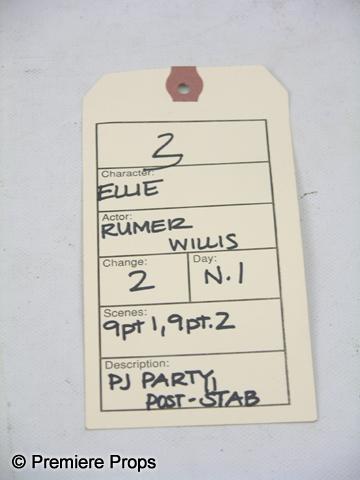 2
Character:
ELLIE
Actor:
RUMER
WILLIS
Change: Day:
2 N.1
Scenes:
9pt 1, 9pt.2
Description:
PJ PARTY,
POST-STAB
© Premiere Props